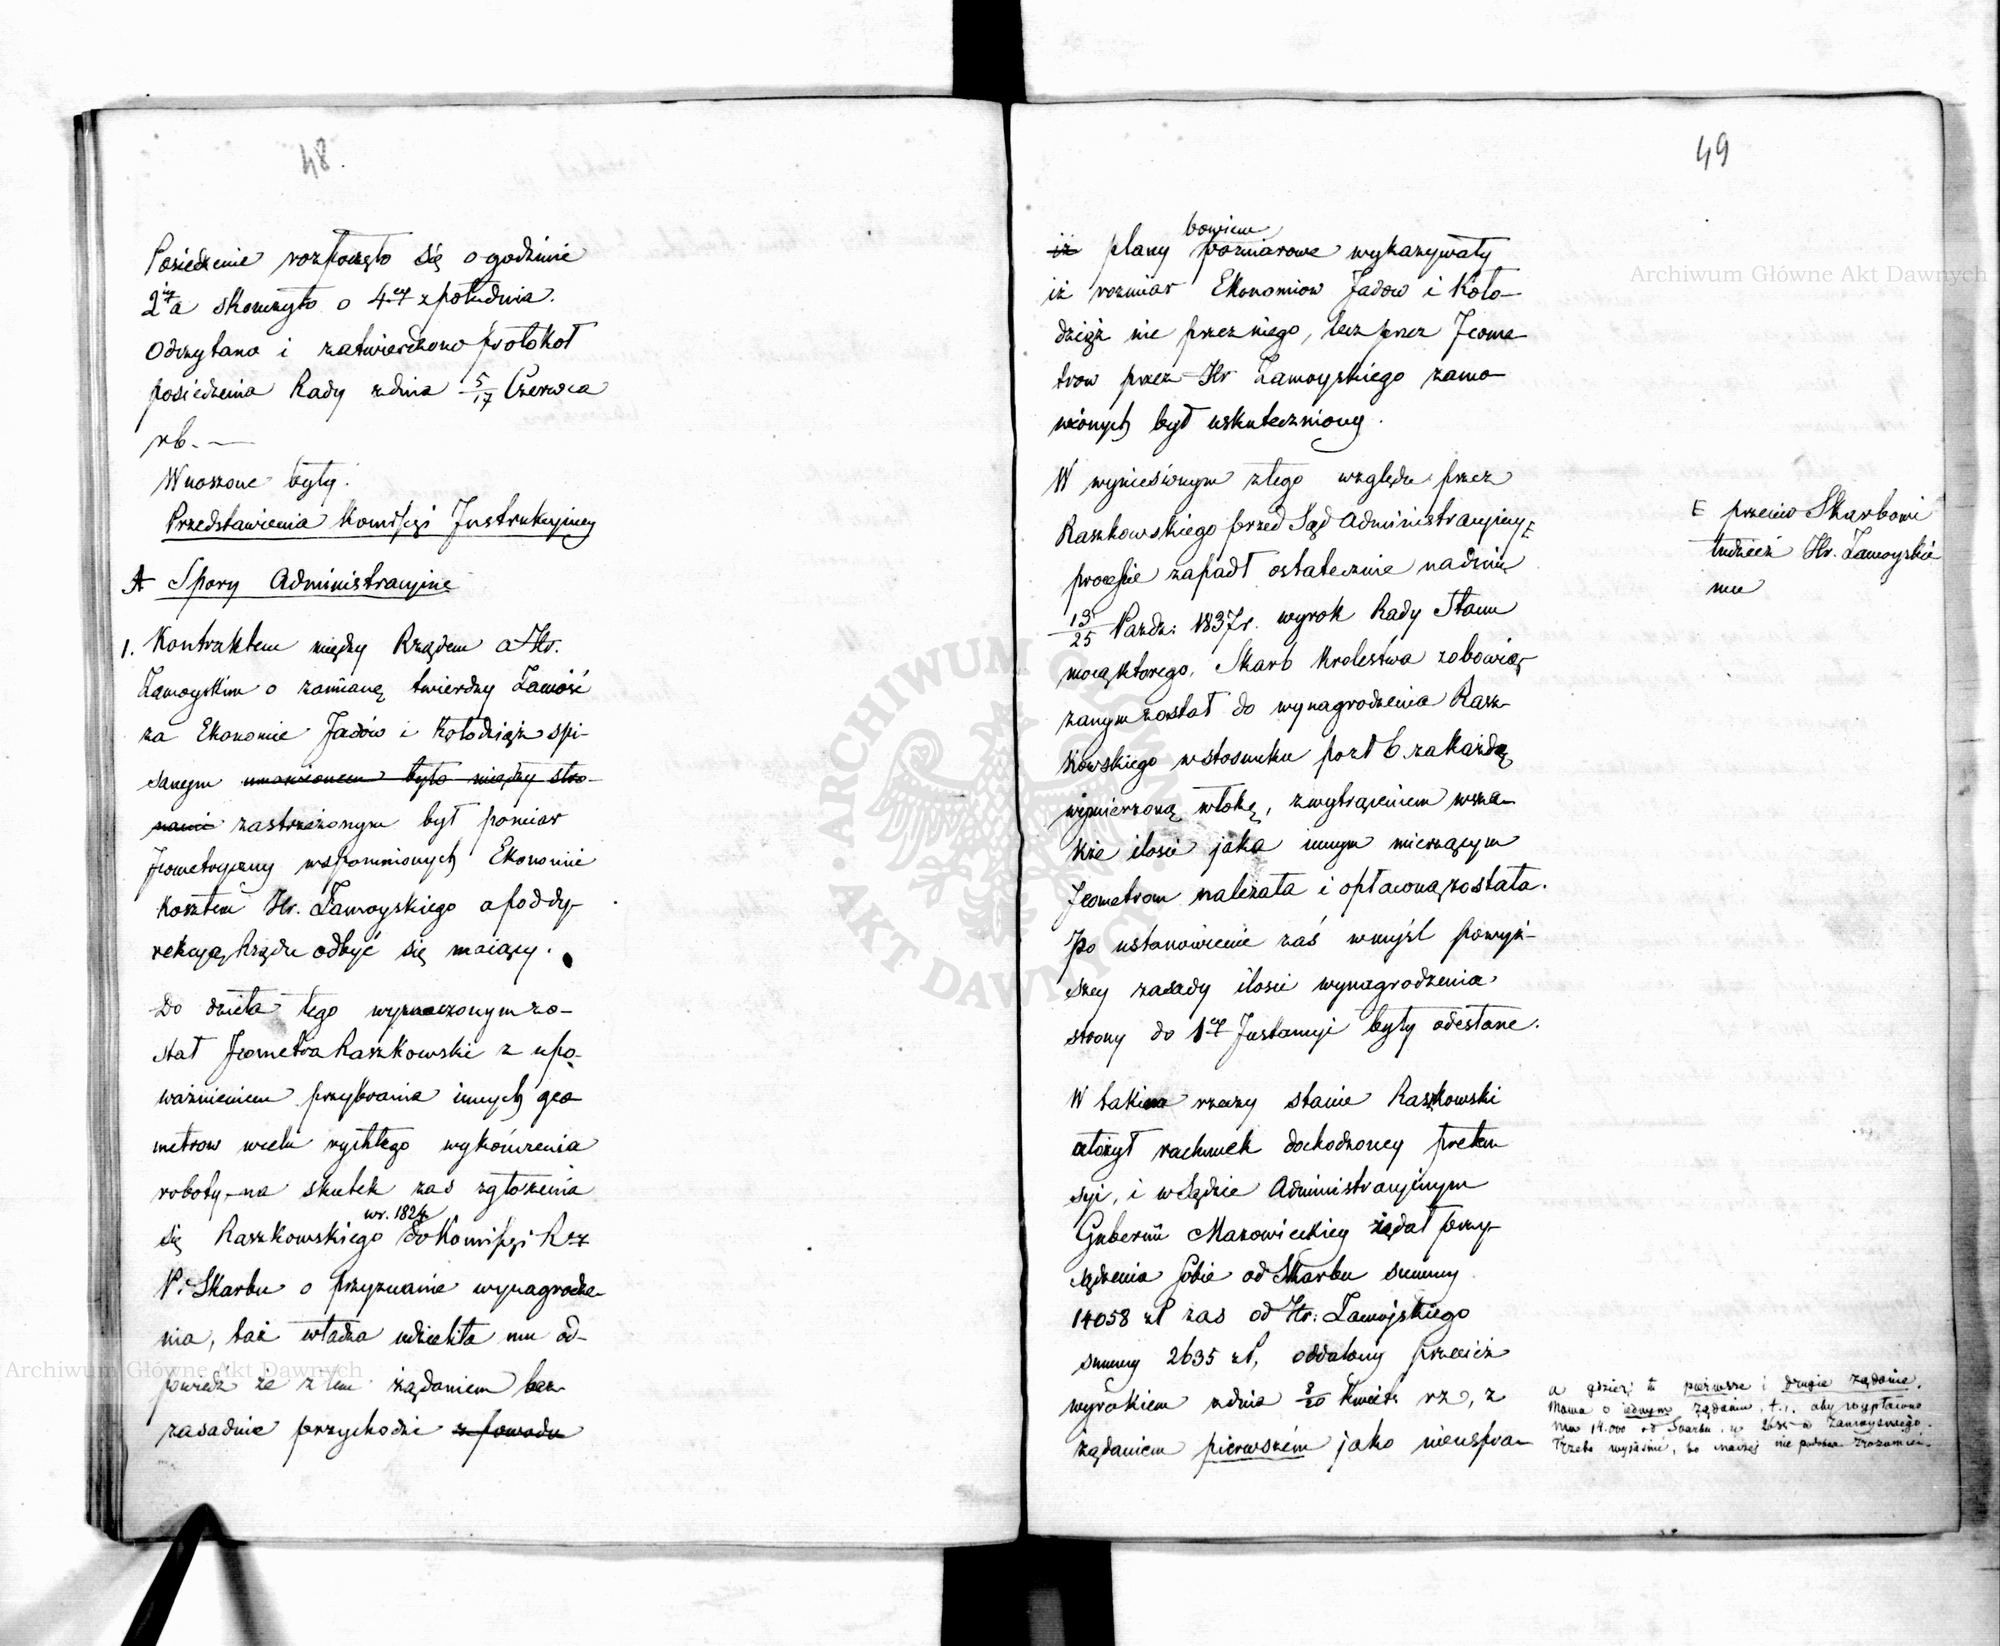 48.
Posiedzenie rozpoczęło się o godzinie
2iéy a skończyło o 4éy z południa.
Odczytano i zatwierdzono protokoł
posiedzenia Rady z dnia 5/17 Czerwca
rb. —
Wnoszone były.
Przedstawienia Kommissyi Instrukcyiney
A Spory Administracyine
1. Kontraktem między Rządem a Hr.
Zamoyskim o zamianę twierdzy Zamość
za Ekonomie Jadów i Kołodziąż spi-
sanym umowionem było między stro-
nami zastrzeżonym był pomiar
Jeometryczny wspomnionych Ekonomii
kosztem Hr. Zamoyskiego a pod dy-
rekcyą Rządu odbyć się maiący.
Do dzieła tego wyznaczonym zo-
stał Jeometra Raszkowski z upo-
ważnieniem przybrania innych geo
metrow wcelu rychłego wykończenia
roboty – na skutek zas zgłoszenia
się Raszkowskiego wr. 1824 do Kommissyi Rzz
P. Skarbu o przyznanie wynagrodze-
nia, taż władza udzieliła mu od-
powiedz że z tem żądaniem bez-
zasadnie przychodzi z powodu
49
iż plany bowiem pomiarowe wykazywały
iż rozmiar Ekonomiow Jadow i Koło-
dziąż nie przez niego, lecz przez Jeome
trow przez Hr Zamoyskiego zamo-
wionych był uskuteczniony.
W wyniesionym z tego względu przez
Raszkowskiego przed Sąd Administracyiny E
processie zapadł ostatecznie na dniu
13/25 Pazdz: 1837 r. wyrok Rady Stanu
mocą ktorego, Skarb Krolestwa zobowią-
zanym został do wynagrodzenia Rasz-
kowskiego w stosunku po zł 6. za każdą
wymierzoną włokę, z wytrąceniem wsza-
kże ilosci jaka innym mierzącym
Jeometrom należała i opłaconą została.
Po ustanowienie zaś w myśl powyż-
szey zasady ilosci wynagrodzenia
strony do 1éy Instancyi były odesłane.
W takim rzeczy stanie Raszkowski
złożył rachunek dochodzoney preten
syi, i w Sądzie Administracyinym
Gubernii Mazowieckiey żądał przy-
sądzenia sobie od Skarbu summy
14058 zł zas od Hr: Zamoyskiego
summy 2635 zł, oddalony przecież
wyrokiem z dnia 8/20 Kwiet: rz, z
żądaniem pierwszém jako nieuspra-
E przeciw Skarbowi
tudzież Hr. Zamoyskie
mu
a gdzież tu pierwsze i drugie żądanie.
Mowa o iednym żądaniu, t.i. aby wypłacono
mu 14.000 od Skarbu, a 2635 od Zamoyskiego.
Trzeba wyjaśnić, bo inaczej nie podobna zrozumieć.
Archiwum Główne Akt Dawnych
Archiwum Główne Akt Dawnych
ARCHIWUM GŁÓWNE AKT DAWNYCH